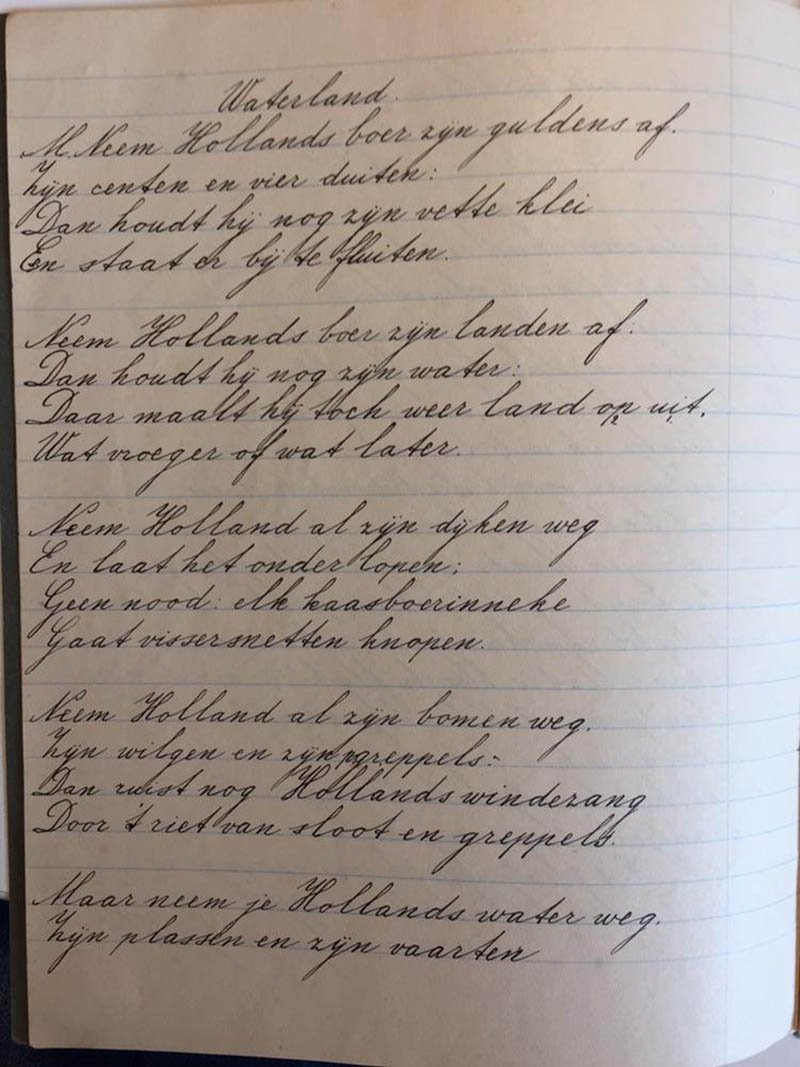 Waterland.
M. Neem Hollands boer zijn guldens af.
Zijn centen en vier duiten:
Dan houdt hij nog zijn vette klei
En staat er bij te fluiten.
Neem Hollands boer zijn landen af:
Dan houdt hij nog zijn water:
Daar maalt hij toch weer land op uit.
Wat vroeger of wat later.
Neem Holland al zijn dijken weg
En laat het onder lopen;
Geen nood: elk kaasboerinneke
Gaat vissersnetten knopen.
Neem Holland al zijn bomen weg.
Zijn wilgen en zijn greppels:
Dan ruist nog Hollands windezang
Door 't riet van sloot en greppels.
Maar neem je Hollands water weg.
Zijn plassen en zijn vaarten